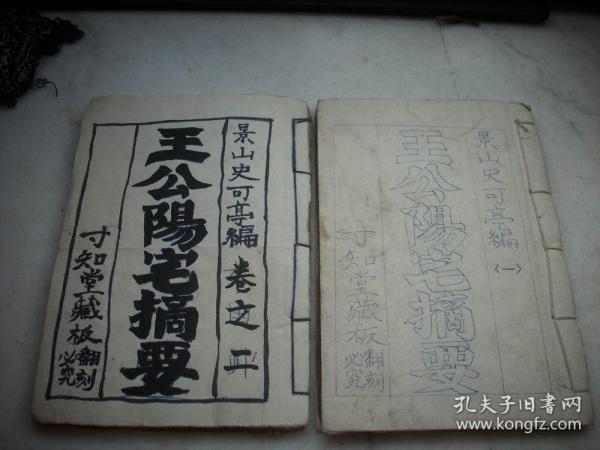 景山史可亭編 卷之二
王公陽宅摘要
寸知堂藏板 翻刻必究
景山史可亭編 〈一〉
王公陽宅摘要
寸知堂藏板 翻刻必究
孔夫子旧书网
www.kongfz.com